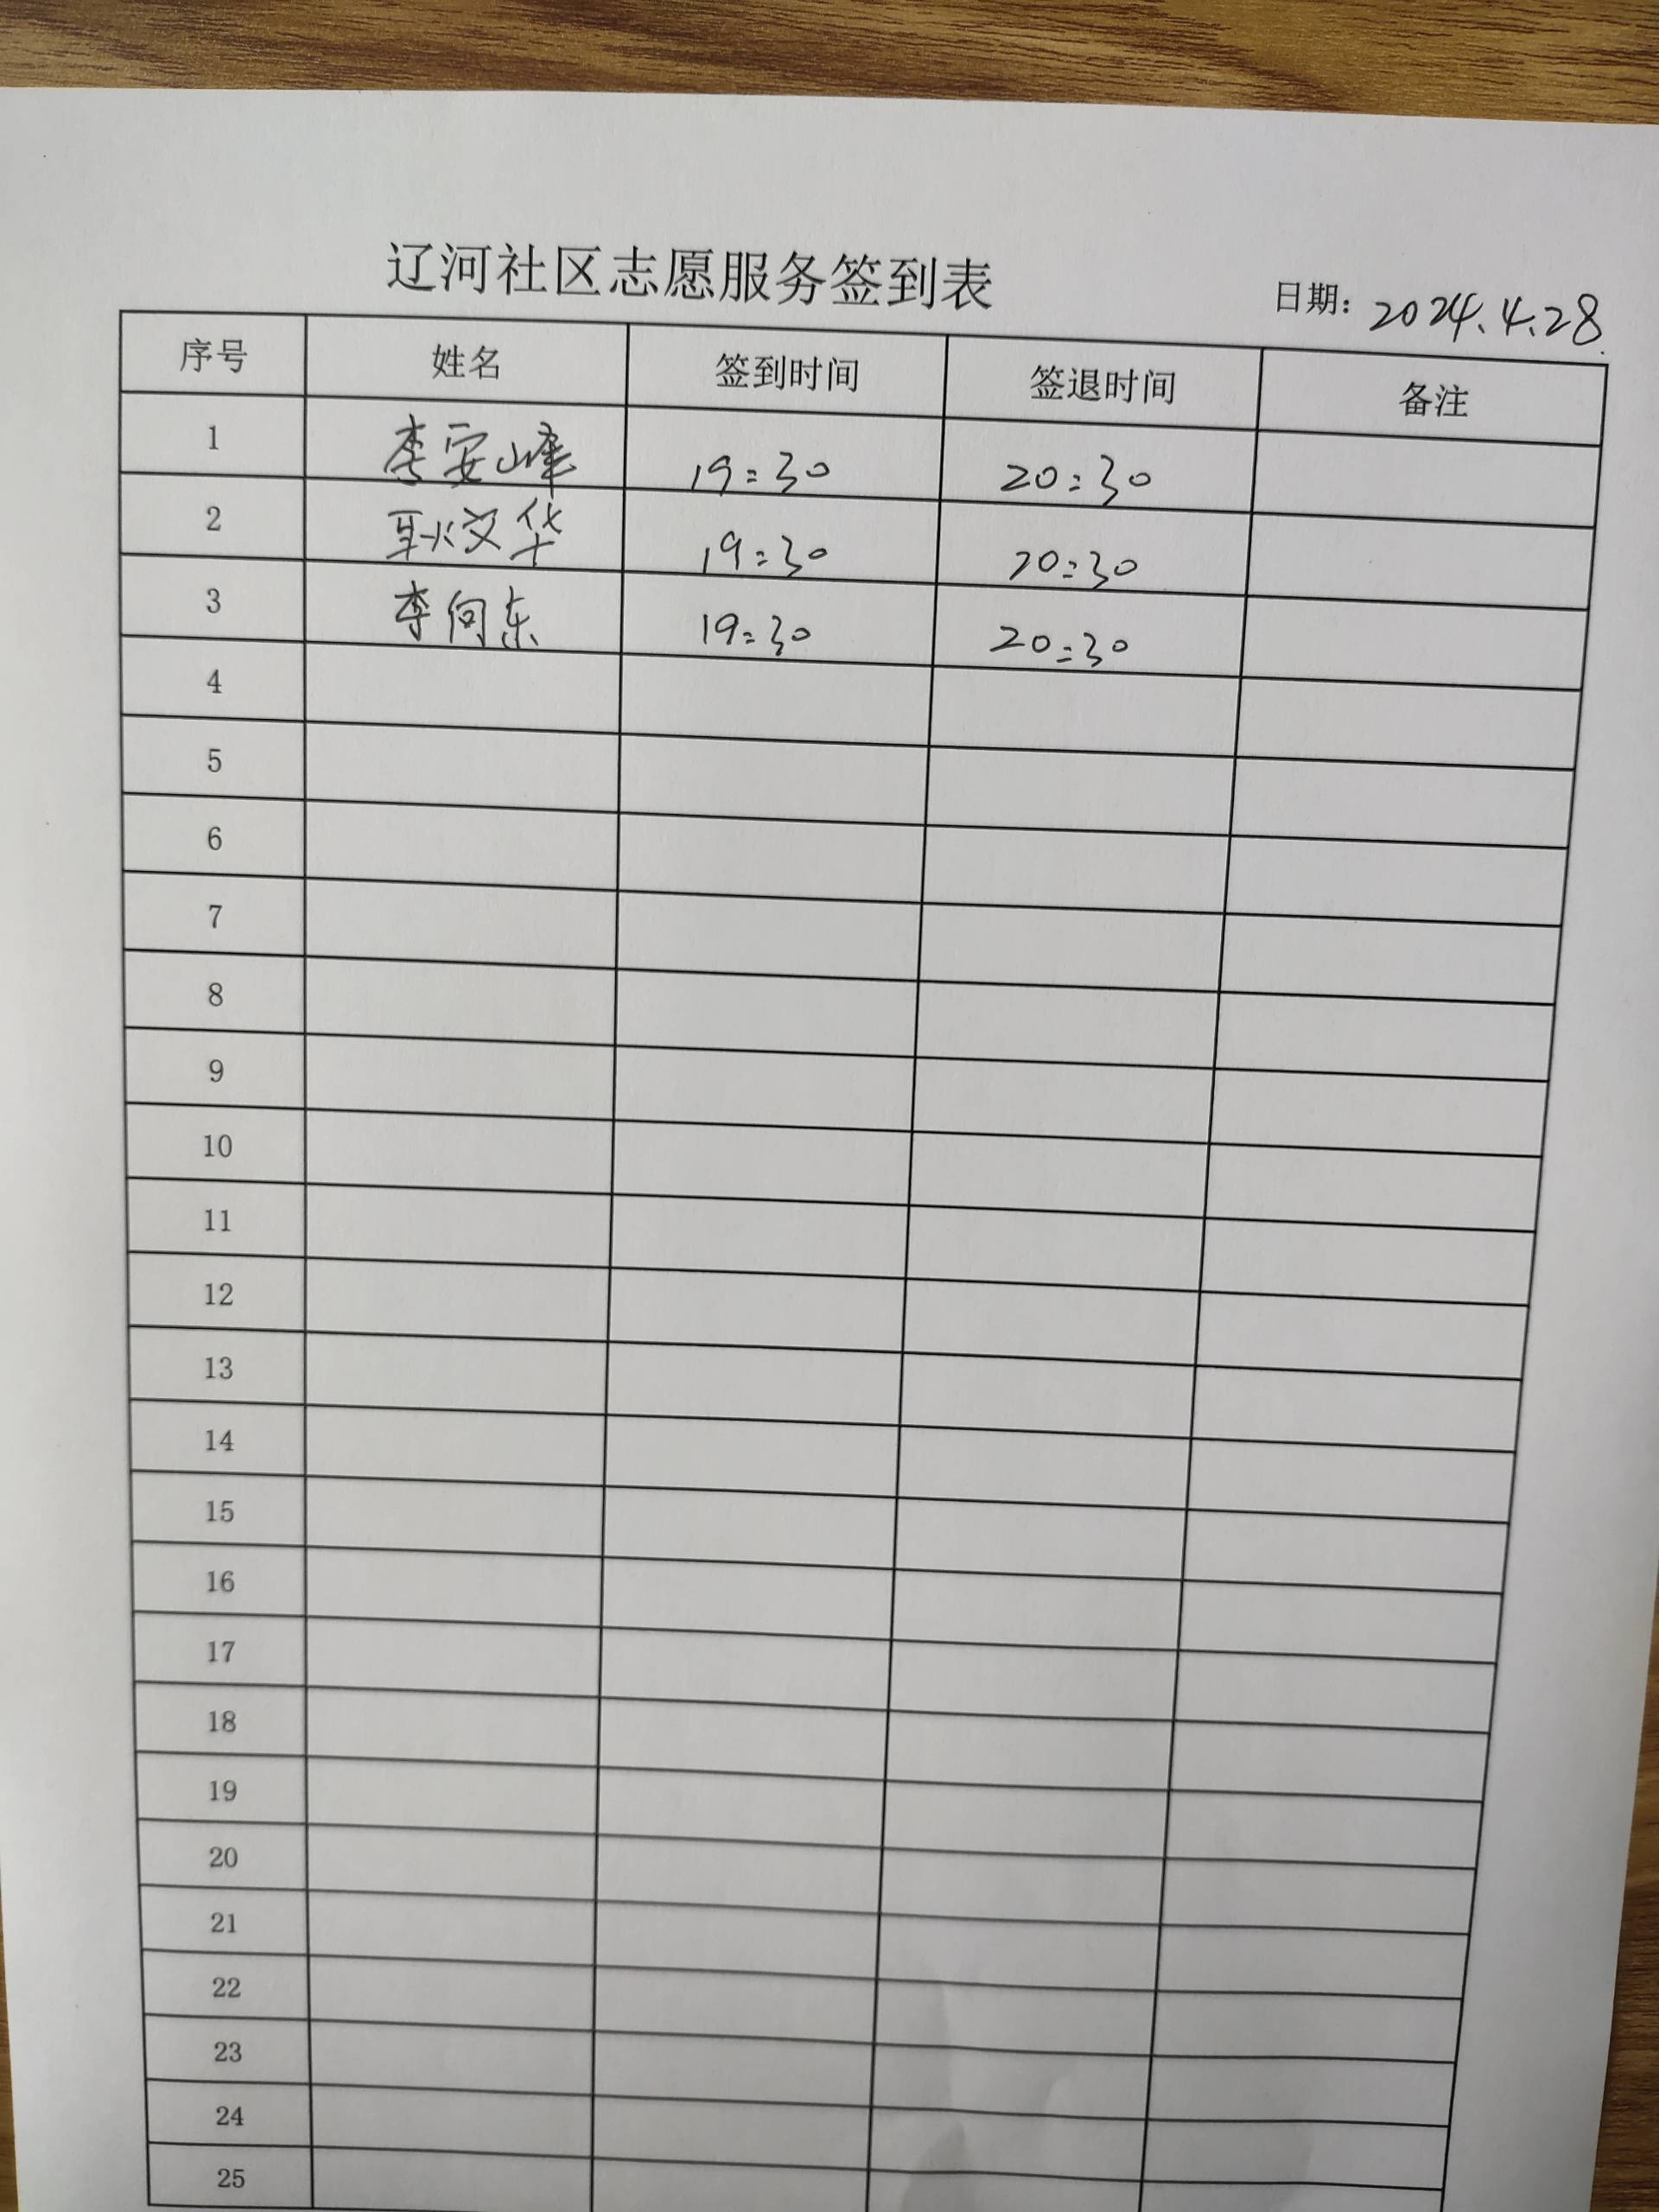 辽河社区志愿服务签到表
日期: 2024.4.28.
序号 姓名 签到时间 签退时间 备注
1 李安峰 19:30 20:30
2 耿文华 19:30 20:30
3 李向东 19:30 20:30
4
5
6
7
8
9
10
11
12
13
14
15
16
17
18
19
20
21
22
23
24
25